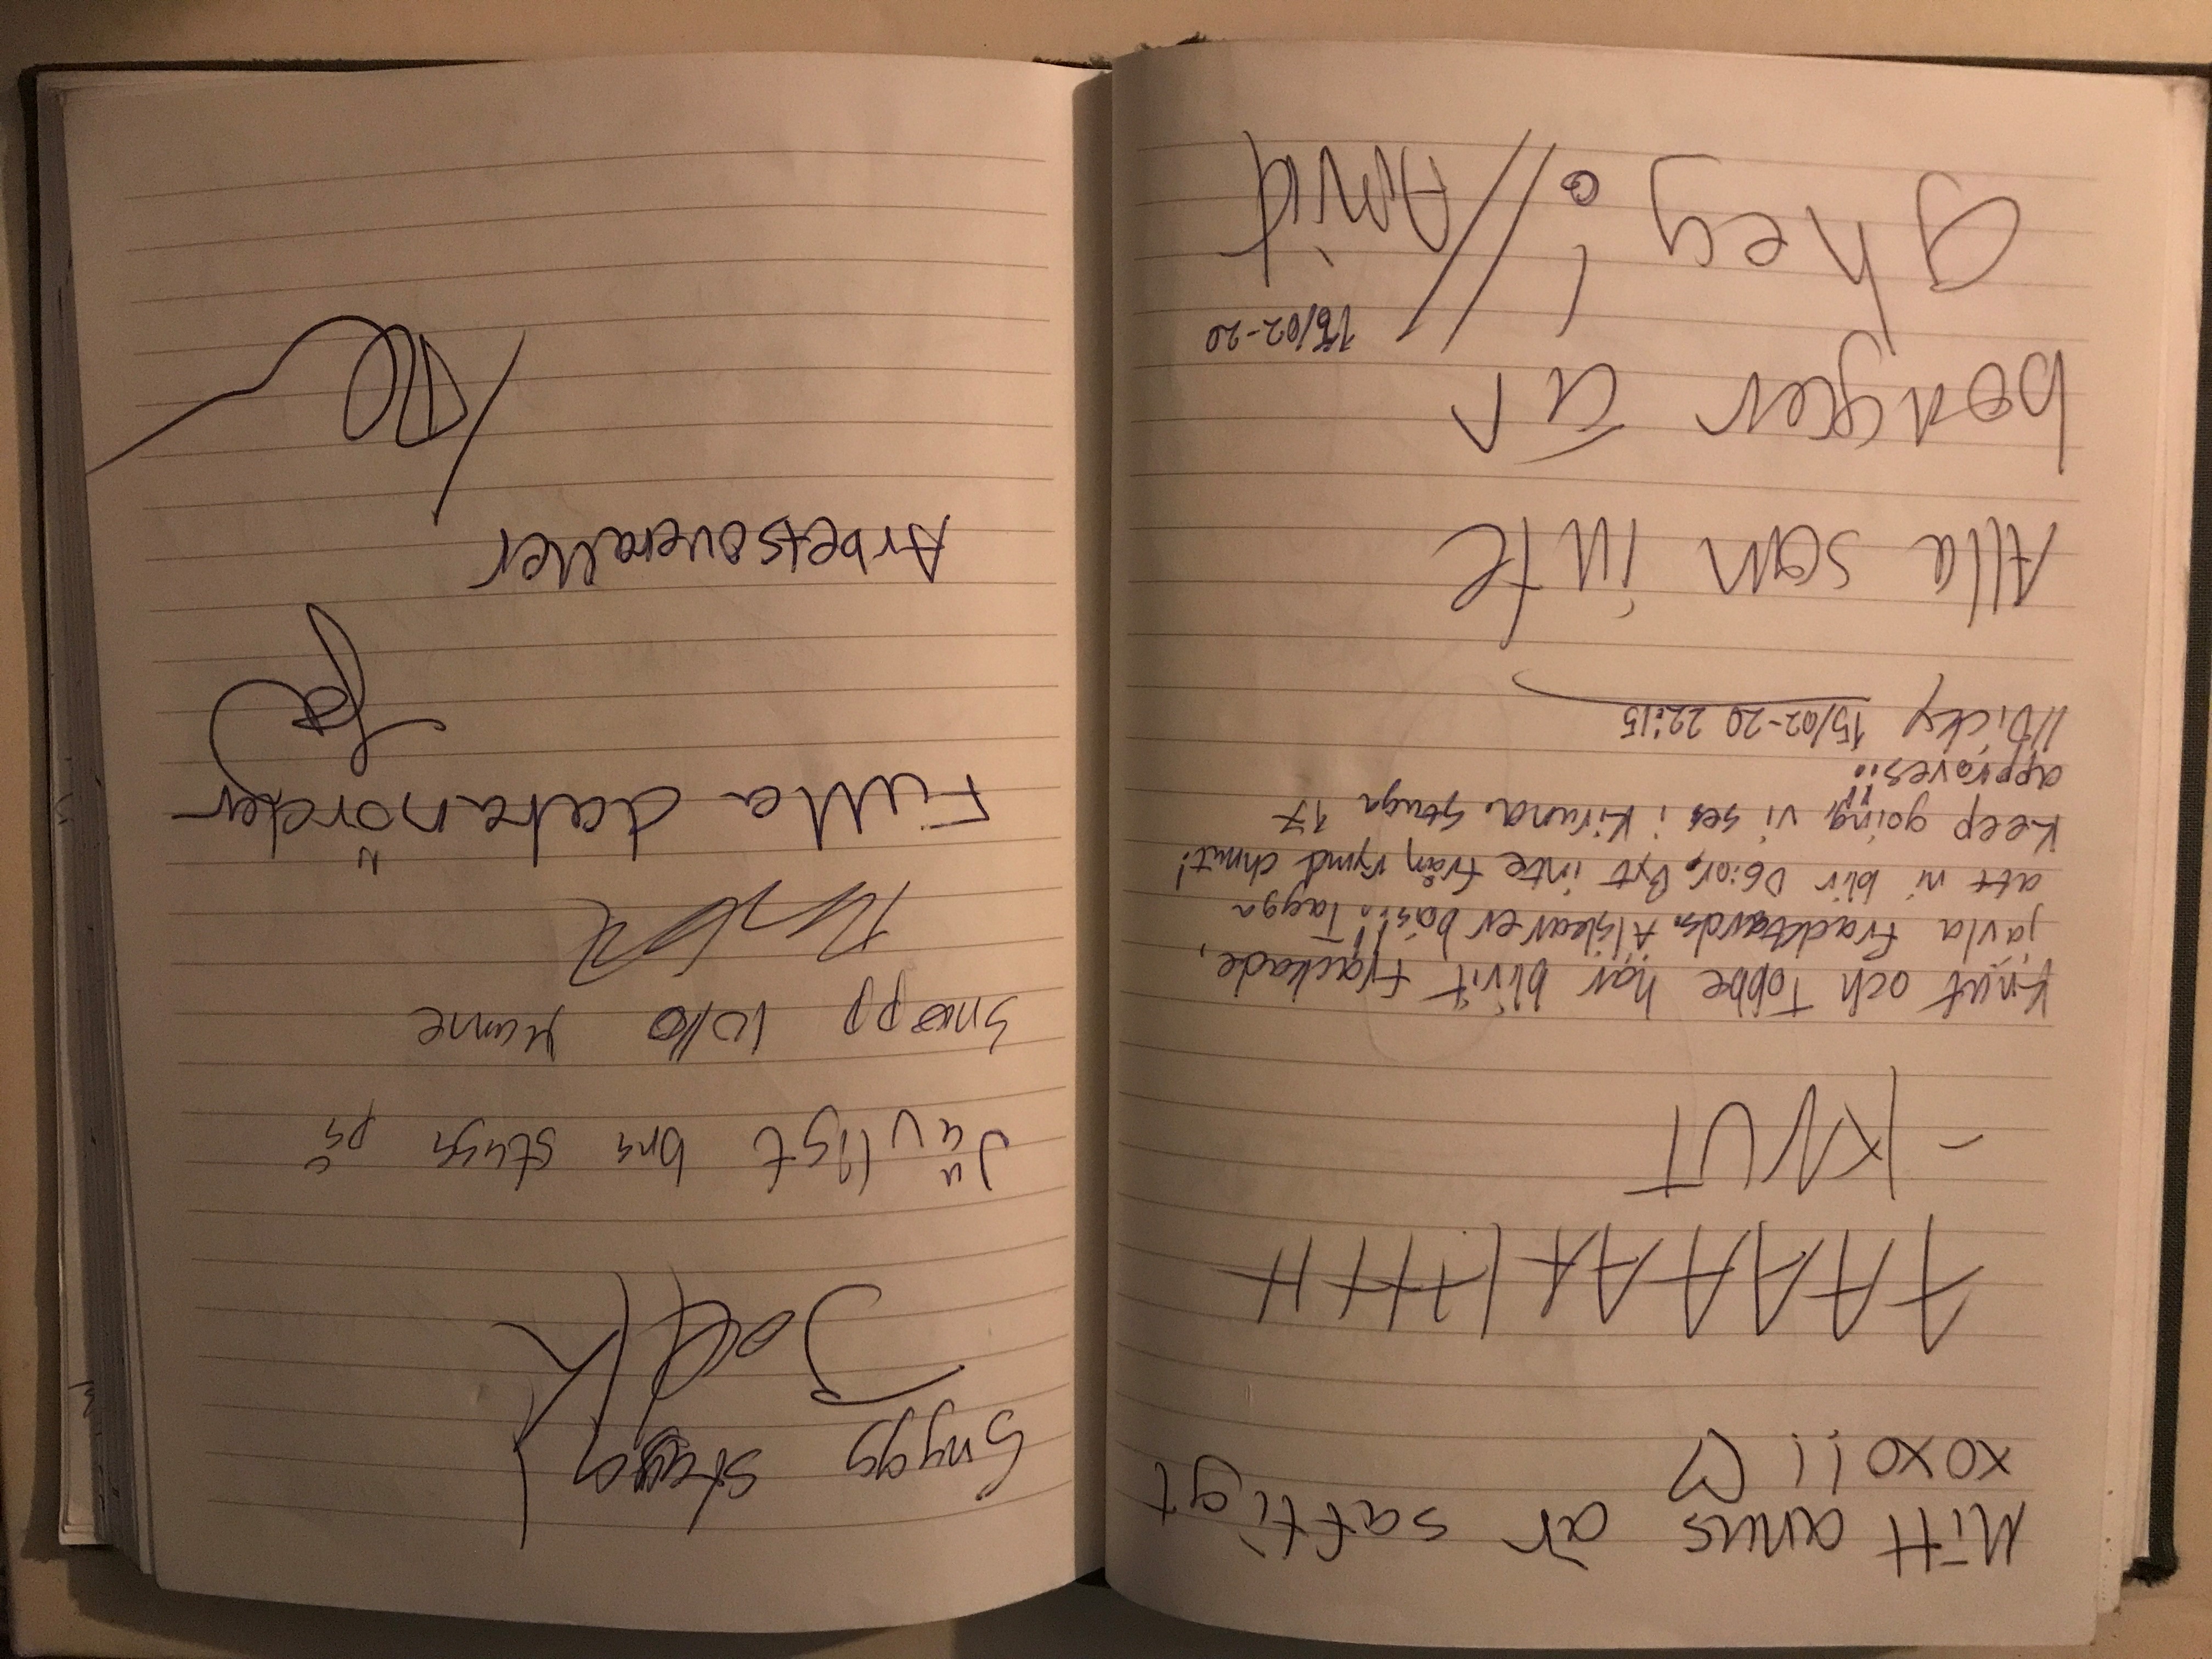 Mitt anus är saftigt
xoxo ii ♡
AAAAAAHHH
- KNUT
Knut och Tobbe har blivit frackade,
jävla fracktards. Älskar er bäs!! Tagga
att ni blir D6:or, Byt inte från rymd chmut!
Keep going, vi ses i Kiruna. Stuga 17
approves!!
//Dicky 15/02-20 22:15
Alla som inte
bonger är
ghey!
//Arvid
15/02-20
Snygg stuga
Jävligt bra stuga på
Snopp lollo kunne
Fulla datanördar
Arbetsoveraller